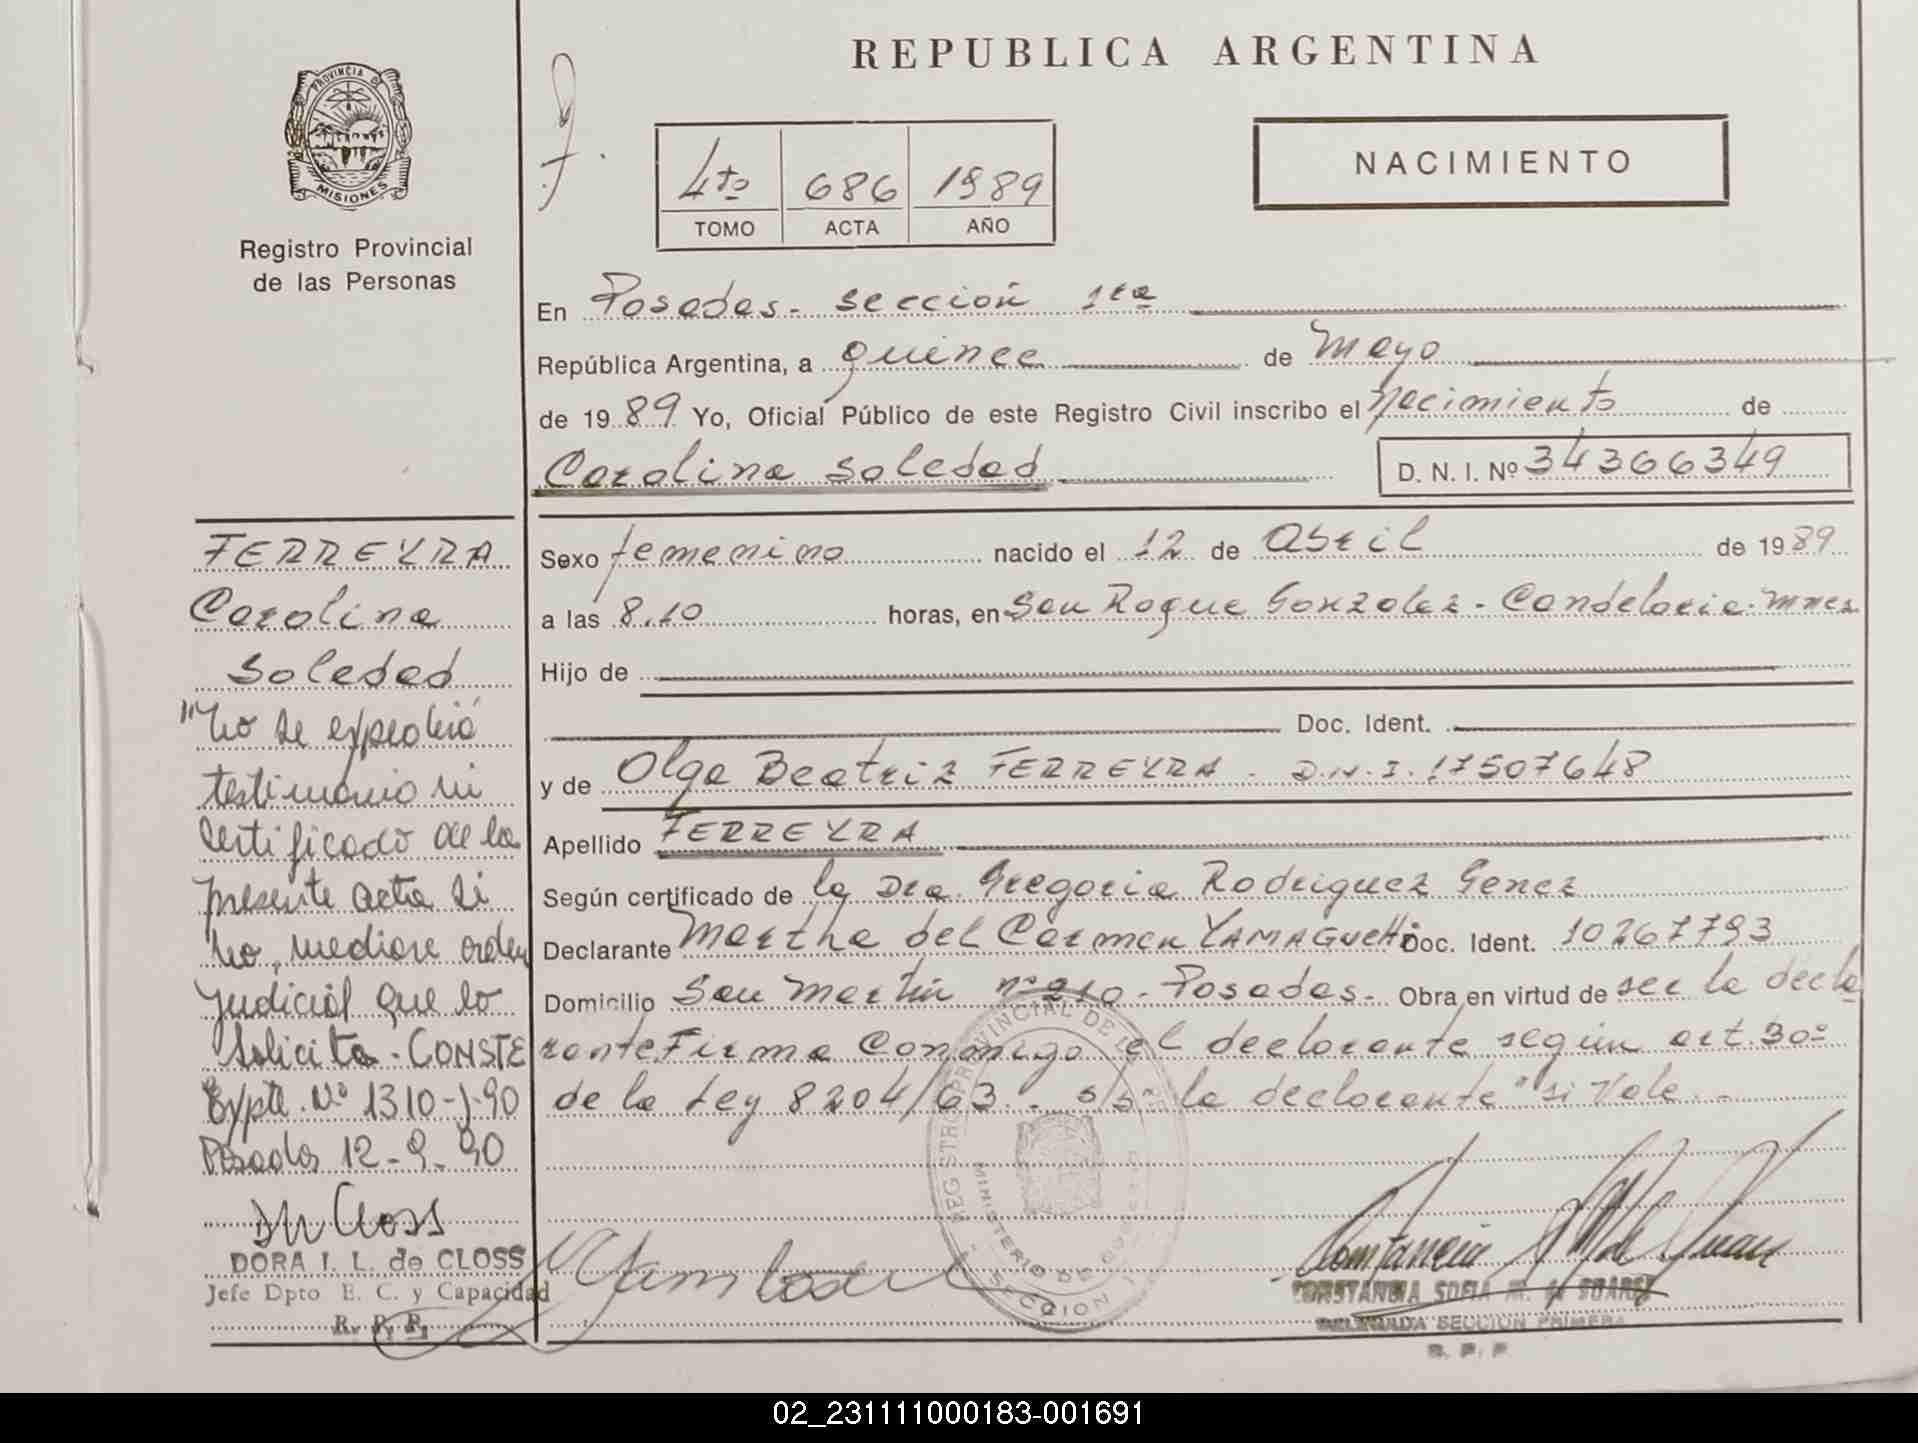 REPUBLICA ARGENTINA
PROVINCIA DE
MISIONES
Registro Provincial
de las Personas
4to 686 1989
TOMO ACTA AÑO
NACIMIENTO
En Posadas - sección 1ra
República Argentina, a quince de Mayo
de 1989 Yo, Oficial Público de este Registro Civil inscribo el nacimiento de
Carolina Soledad D. N. I. Nº 34366349
Sexo femenino nacido el 12 de Abril de 1989
a las 8.10 horas, en San Roque Gonzalez - Candelaria - Mnes
Hijo de
Doc. Ident.
y de Olga Beatriz FERREYRA - D.N.I. 17507648
Apellido FERREYRA
Según certificado de la Dra. Gregoria Rodriguez Genez
Declarante Martha del Carmen YAMAGUCHI Doc. Ident. 10267793
Domicilio San Martín nº 210 - Posadas - Obra en virtud de ser la decla
rante Firma Conmigo el declarante según art. 30º
de la Ley 8204/63 - s/b "la declarante" si Vale -
FERREYRA
Carolina
Soledad
"No se expedirá
testimonio ni
certificado de la
presente acta si
no, mediare orden
judicial que lo
solicita - CONSTE
Expte. Nº 1310-J-90
Posadas 12-9-90
DORA I. L. de CLOSS
Jefe Dpto E. C. y Capacidad
R. P. P.
REGISTRO PROVINCIAL DE
MINISTERIO DE GOBIERNO
SECCION 1
CONSTANCIA SOFIA M. de SUAREZ
DELEGADA SECCION PRIMERA
R. P. P.
02_231111000183-001691